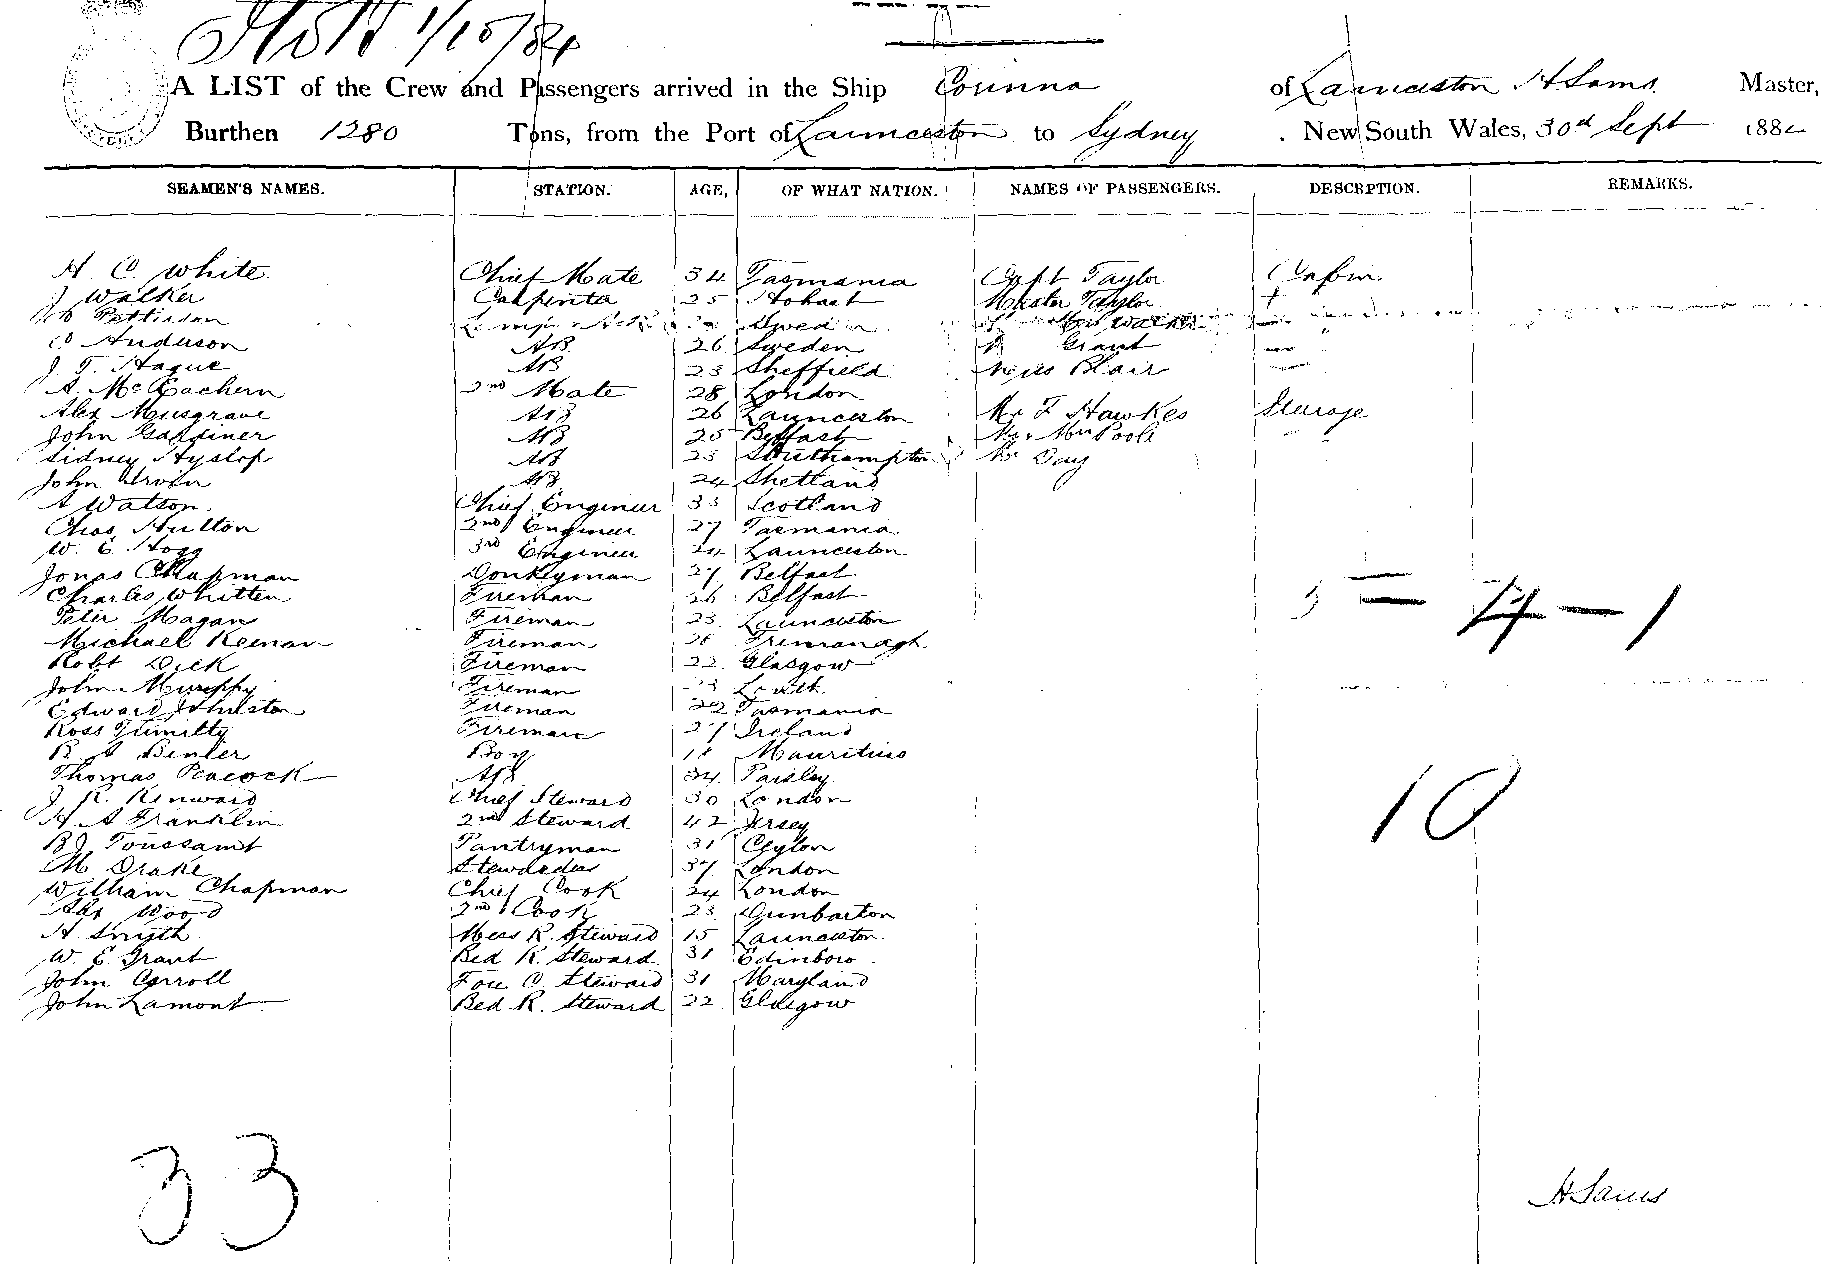 1/10/84
A LIST of the Crew and Passengers arrived in the Ship Corinna of Launceston H Sams Master,
Burthen 1280 Tons, from the Port of Launceston to Sydney . New South Wales, 30th Sept 188
SEAMEN'S NAMES. STATION. AGE, OF WHAT NATION. NAMES OF PASSENGERS. DESCRPTION. REMARKS.
H. C. White Chief Mate 34 Tasmania Capt Taylor Cabin
J Walker Carpenter 25 Hobart Master Taylor
Pettirson Sweden Mrs Walker
Anderson AB 26 Sweden Grant
J. T. Hague AB 23 Sheffield Miss Blair
A. McEachern 2nd Mate 28 London
Alex Musgrave AB 26 Launceston Mr F Hawkes Steerage
John Gardiner AB 25 Belfast Mr & Mrs Poole
Sidney Hyslop AB 23 Southampton Mr Day
John Irvin AB 24 Shetland
A Watson Chief Engineer 33 Scotland
Chas Hulton 2nd Engineer 27 Tasmania
W. E. Hogg 3rd Engineer 24 Launceston
Jonas Chapman Donkeyman 27 Belfast
Charles Whitten Fireman 26 Belfast
Peter Magan Fireman 23 Launceston
Michael Keenan Fireman Frmanagh
Robt Dick Fireman 22 Glasgow
John Murphy Fireman Louth
Edward Johnston Fireman 22 Tasmania
Ross Fireman 27 Ireland
R. A Benler Boy 18 Mauritius
Thomas Peacock AB 34 Paisley
J. R. Kenward Chief Steward 30 London
H A Franklin 2nd Steward 42 Jersey
B J Toussamt Pantryman 31 Ceylon
M Drake Stewardess 37 London
William Chapman Chief Cook 24 London
Alex Wood 2nd Cook 23 Dunbarton
H Smyth Mess R. Steward 15 Launceston
W. E. Grant Bed R. Steward 31 Edinboro
John Carroll Fore C Steward 31 Maryland
John Lamont Bed R. Steward 22 Glasgow
10
33
H Sams